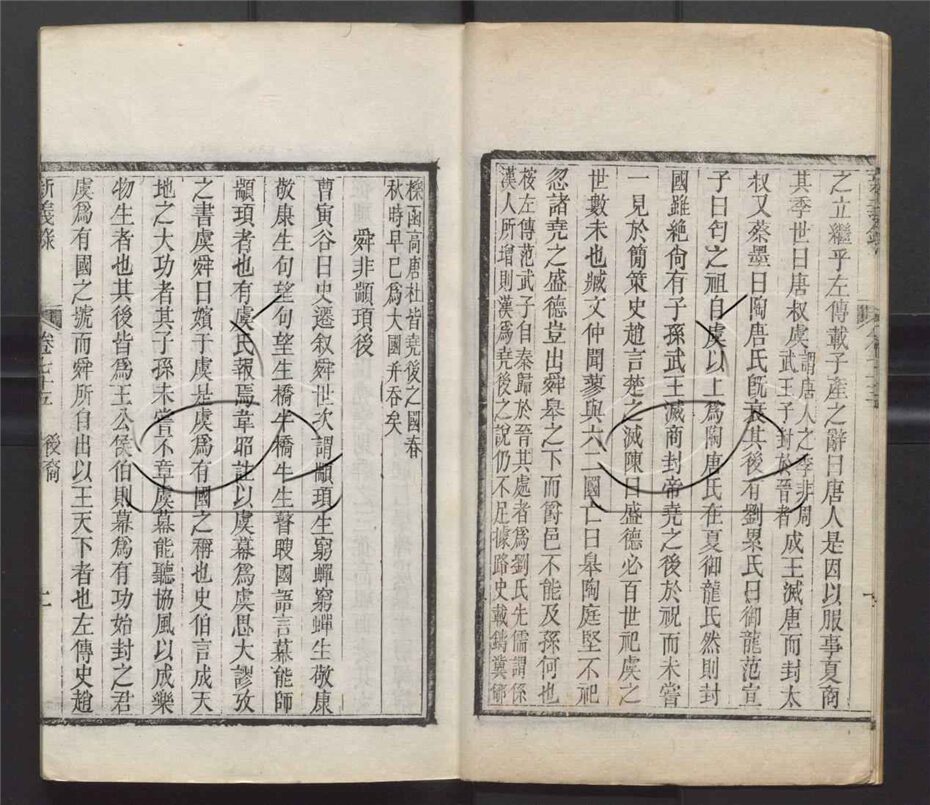 之立繼乎左傳載子產之辭曰唐人是因以服事夏商
其季世曰唐叔虞謂唐人之季非周武王子封於晉者成王滅唐而封太
叔又蔡墨曰陶唐氏既衰其後有劉累氏曰御龍范宣
子曰匄之祖自虞以上爲陶唐氏在夏御龍氏然則封
國雖絶尙有子孫武王滅商封帝堯之後於祝而未嘗
一見於簡策史趙言楚之滅陳曰盛德必百世祀虞之
世數未也臧文仲聞蓼與六二國亡曰皋陶庭堅不祀
忽諸堯之盛德豈出舜皋之下而爵邑不能及孫何也
按左傳范武子自秦歸於晉其處者爲劉氏先儒謂係
漢人所增則漢爲堯後之說仍不足據路史載鑄冀郇
櫟函高唐杜皆堯後之國春
秋時早已爲大國并吞矣
舜非顓頊後
曹寅谷曰史遷叙舜世次謂顓頊生窮蟬窮蟬生敬康
敬康生句望句望生橋牛橋牛生瞽瞍國語言幕能師
顓頊者也有虞氏報焉韋昭註以虞幕爲虞思大謬攷
之書虞舜曰嬪于虞是虞爲有國之稱也史伯言成天
地之大功者其子孫未嘗不章虞幕能聽協風以成樂
物生者也其後皆爲王公侯伯則幕爲有功始封之君
虞爲有國之號而舜所自出以王天下者也左傳史趙
新義錄
卷七十五
後裔